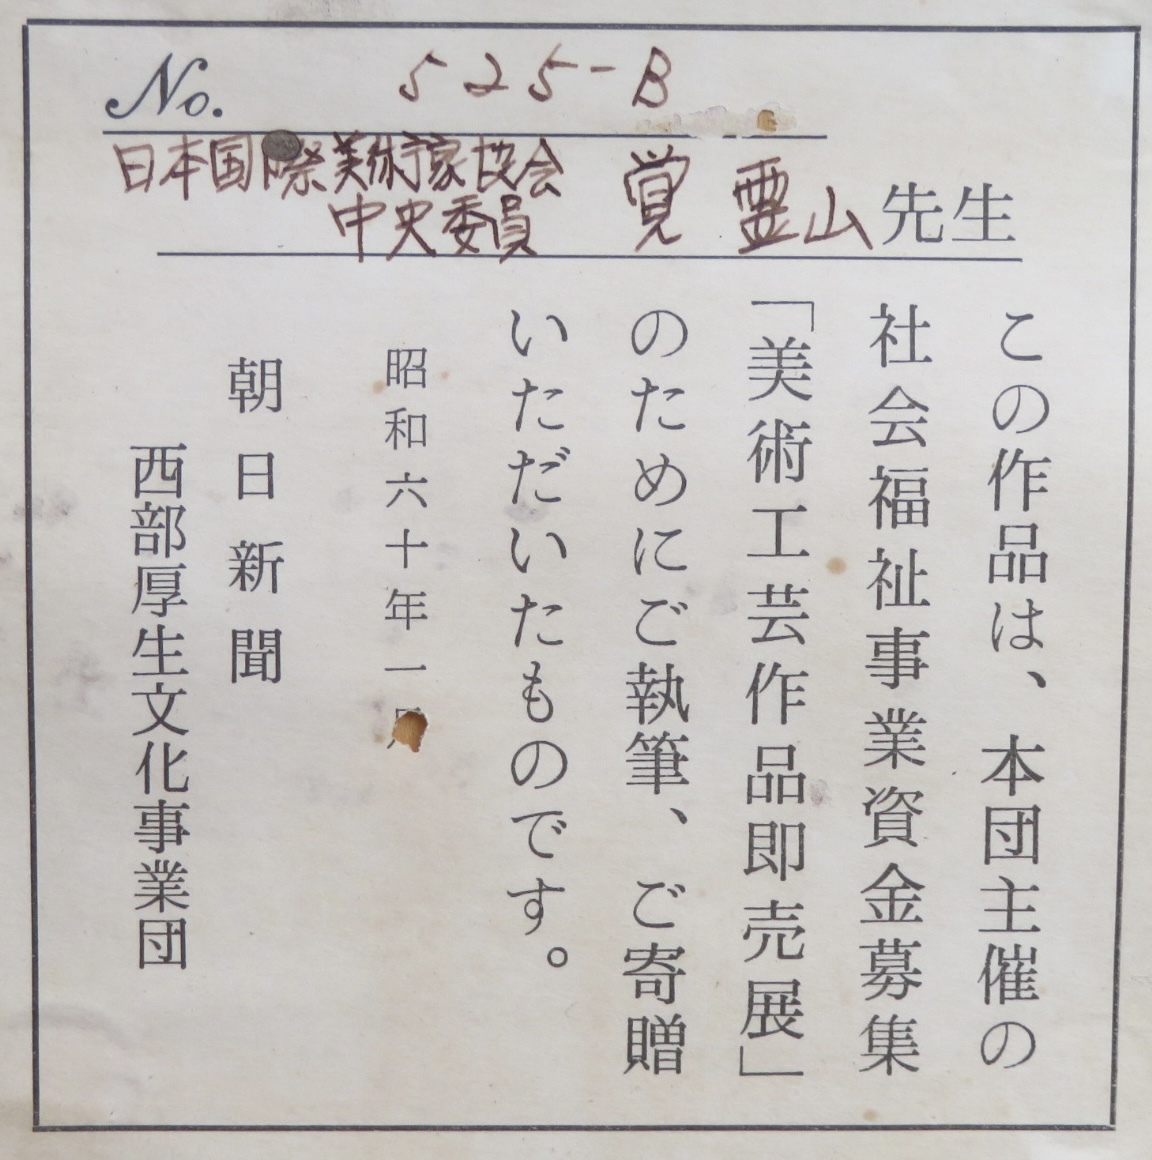 No. 525-B
日本国際美術家協会
中央委員 覚 霊山先生
この作品は、本団主催の
社会福祉事業資金募集
「美術工芸作品即売展」
のためにご執筆、ご寄贈
いただいたものです。
昭和六十年一月
朝日新聞
西部厚生文化事業団